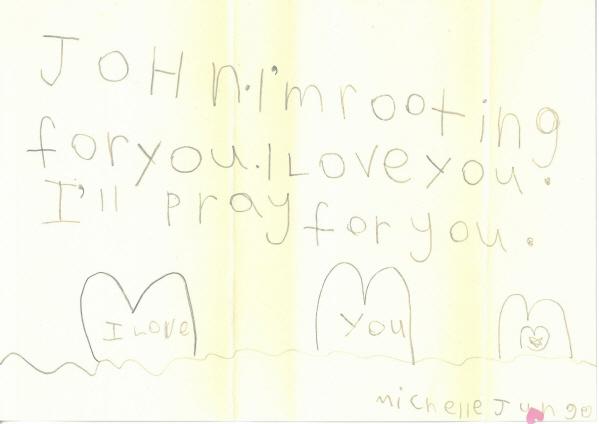 JOHn. I'm rooting
for you. I Love you.
I'll pray for you.
I Love
you
michelle Jungo